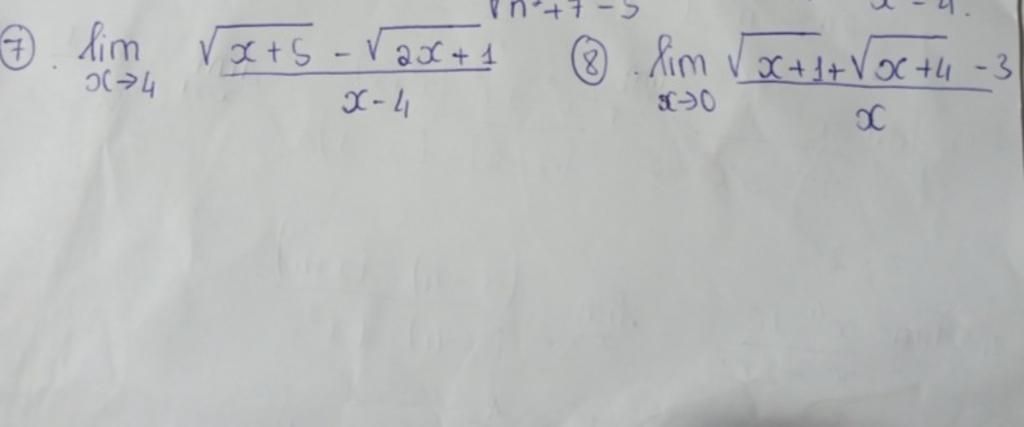 √n²+7 - 5
x - 4.
⑦. lim x→4 (√(x+5) - √(2x+1)) / (x-4)
⑧. lim x→0 (√(x+1) + √(x+4) - 3) / x